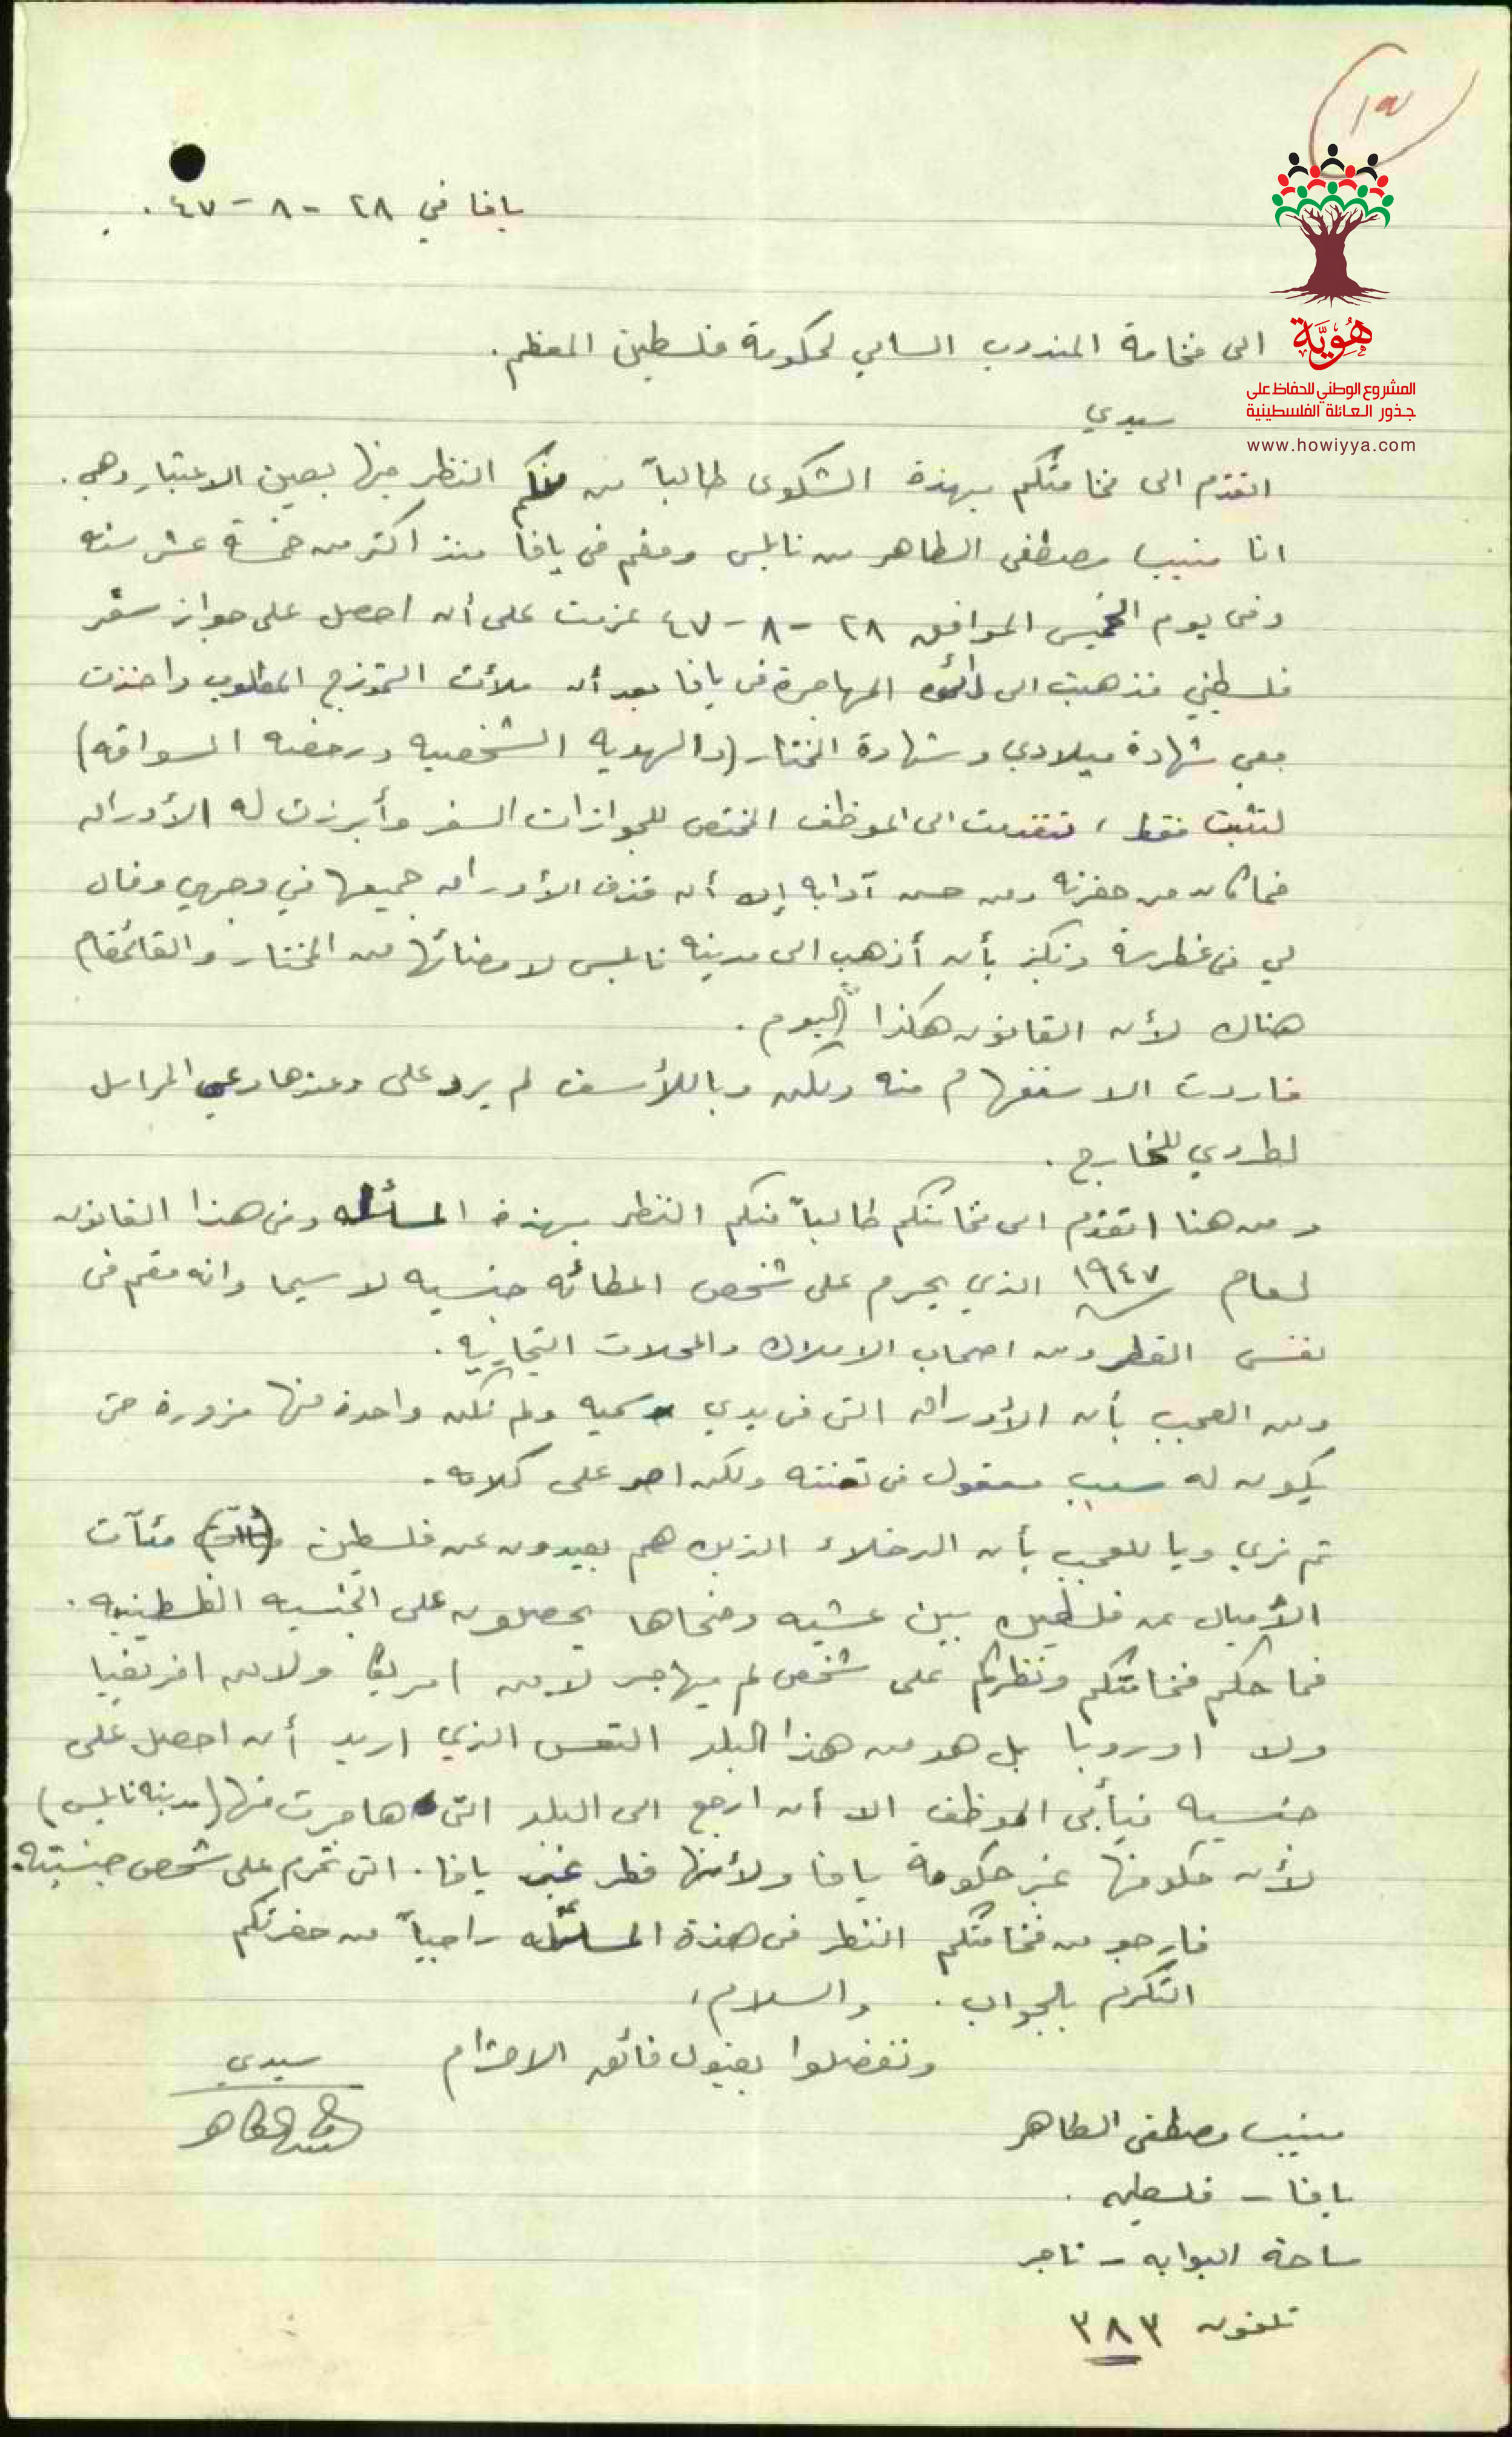 يافا في ٢٨ - ٨ - ٤٧ .
هُوِيَّة
المشروع الوطني للحفاظ على
جذور العائلة الفلسطينية
www.howiyya.com
الى فخامة المندوب السامي لحكومة فلسطين المعظم .
سيدي
اتقدم الى فخامتكم بهذة الشكوى طالباً من منكم النظر فيها بعين الاعتبار وهي .
انا منيب مصطفى الطاهر من نابلس ومقيم في يافا منذ اكثر من خمسة عشر سنه
وفي يوم الخميس الموافق ٢٨ - ٨ - ٤٧ عزمت على أن احصل على جواز سفر
فلسطيني فذهبت الى دائره المهاجرة في يافا بعد أن ملأت النموذج المطلوب واخذت
معي شهادة ميلادي وشهادة المختار (والهويه الشخصيه ورخصه السواقه)
لتثبت فقط ، فتقدمت الى الموظف المختص للجوازات السفر وأبرزت له الأوراق
فما كان من حضرته ومن حسن آدابه إلا أن قذف الأوراق جميعها في وجهي وقال
لي في غطرسة وتكبر بأن أذهب الى مدينه نابلس لامضائها من المختار والقائمقام
هناك لأن القانون هكذا اليوم .
فاردت الاستفهام منه ولكن وباللأسف لم يرد على وعندها دعى المراسل
لطردي للخارج .
ومن هنا اتقدم الى فخامتكم طالباً منكم النظر بهذه المسأله وفي هذا القانون
لعام ١٩٤٧ الذي يحرم على شخص اعطائه جنسيه لا سيما وانه مقيم في
نفس القطر ومن اصحاب الاملاك والمحلات التجاريه .
ومن العجب بأن الأوراق التي في يدي رسميه ولم تكن واحدة منها مزورة حتى
يكون له سبب معقول في تعنته ولكن اصر على كلامه .
ثم نرى ويا للعجب بأن الدخلاء الذين هم بعيدون عن فلسطين مئآت
الأميال عن فلسطين بين عشيه وضحاها يحصلون على الجنسيه الفلسطينيه .
فما حكم فخامتكم ونظركم على شخص لم يهاجر لا من امريكا ولا من افريقيا
ولا اوروبا بل هو من هذا البلد التعس الذي اريد أن احصل على
جنسيه فيأبى الموظف الا أن ارجع الى البلد التي هاجرت منها (مدينه نابلس)
لأن حكومتها غير حكومة يافا ولأنها قطر غير يافا . التي تحرم على شخص جنسيته .
فارجو من فخامتكم النظر في هذة المسأله راجياً من حضرتكم
التكرم بالجواب . والسلام ،
وتفضلوا بقبول فائق الاحترام سيدي
منيب مصطفى الطاهر
يافا - فلسطين .
ساحة البوابه - تاجر
تلفون ٣٨٣